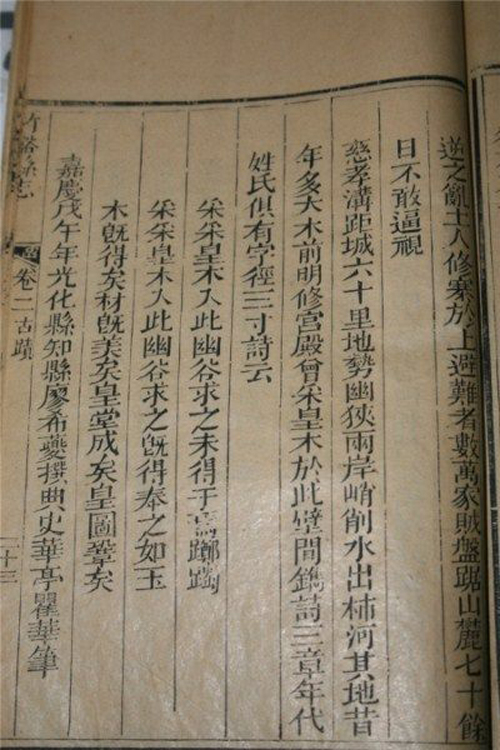 逆之亂土人修寨於上避難者數萬家賊盤踞山麓七十餘
日不敢逼視
慈孝溝距城六十里地勢幽狹兩岸峭削水出柿河其地昔
年多大木前明修宮殿曾采皇木於此壁間鐫詩三章年代
姓氏俱有字徑三寸詩云
采采皇木入此幽谷求之未得于焉躑躅
采采皇木入此幽谷求之旣得奉之如玉
木旣得矣材旣美矣皇堂成矣皇圖鞏矣
嘉慶戊午年光化縣知縣廖希夔撰典史華亭瞿華筆
竹谿縣志
卷二古蹟
二十三